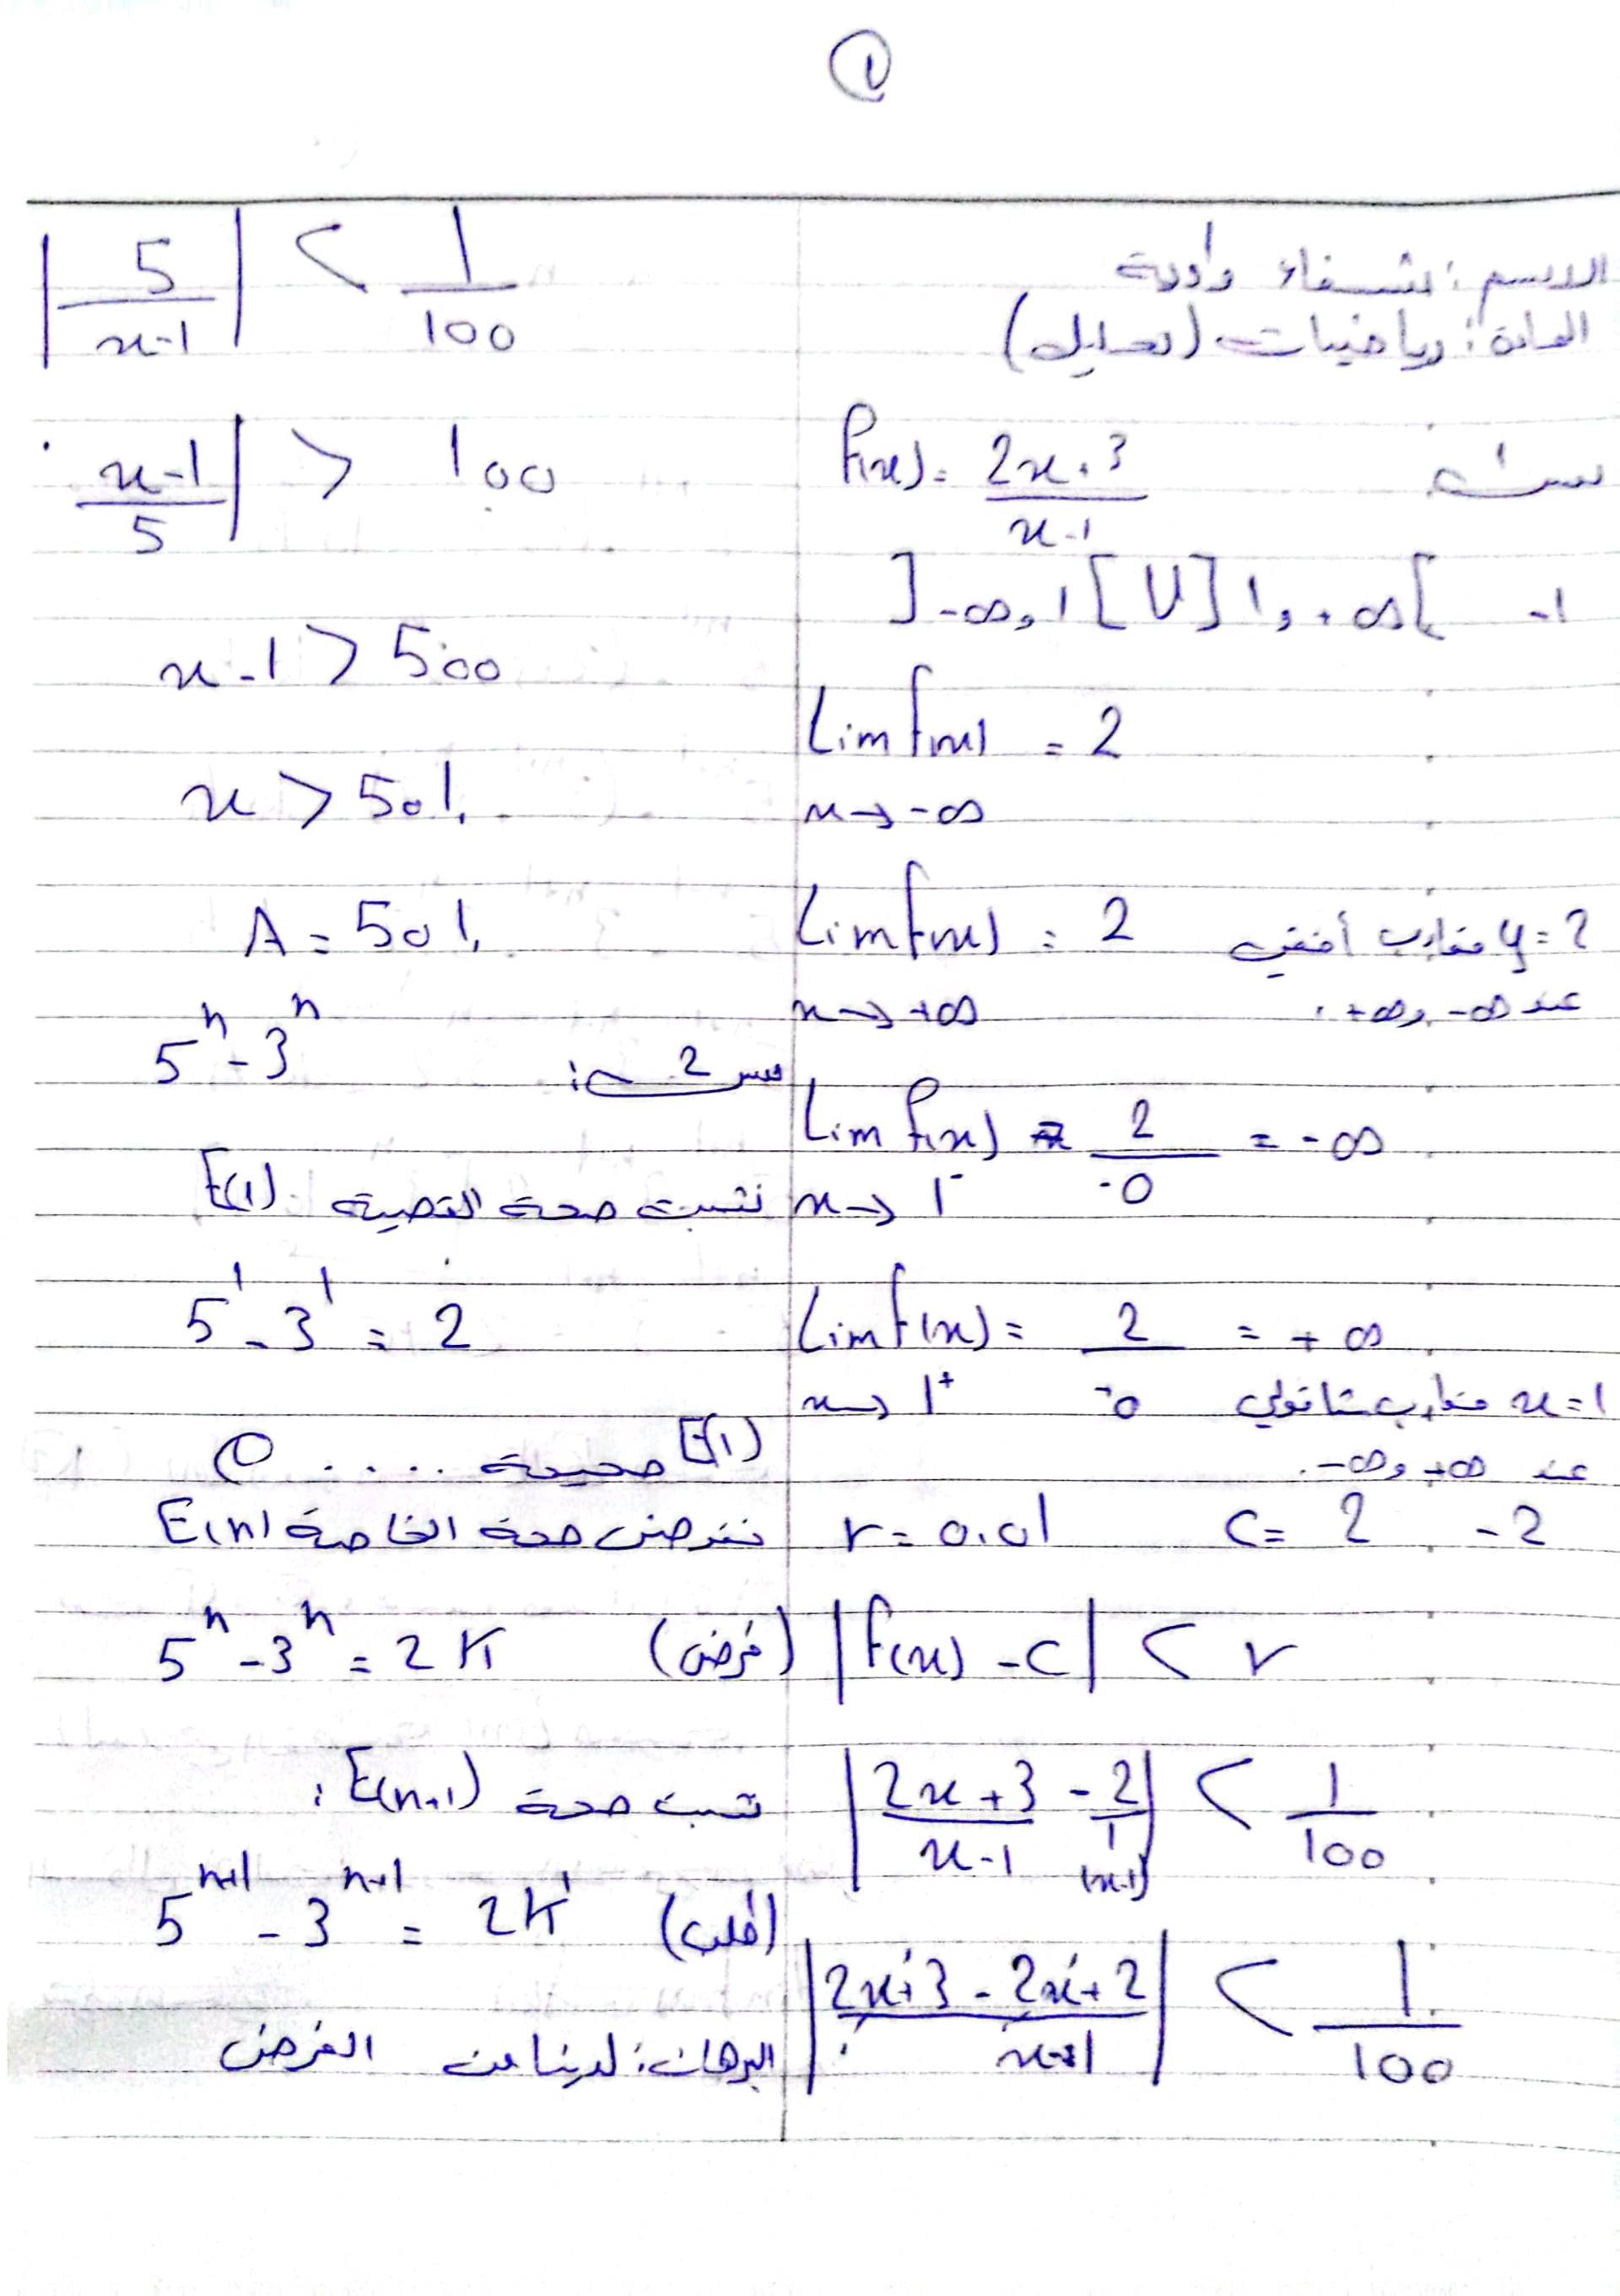 1
الاسم: شفاء وادية
المادة: رياضيات (تحليل)
س1 f(x) = 2x+3 / x-1
1- ]-∞, 1[ U ]1, +∞[
Lim f(x) = 2
x→-∞
Lim f(x) = 2 y=2 مقارب أفقي
x→+∞ عند -∞ و +∞.
Lim f(x) = 2 / -0 = -∞
x→1⁻
Lim f(x) = 2 / 0 = +∞
x→1⁺ x=1 مقارب شاقولي
عند +∞ و -∞.
2- c = 2 r = 0.01
|f(x) - c| < r
|2x+3 / x-1 - 2 / 1 (x-1)| < 1 / 100
|2x+3 - 2x+2 / x-1| < 1 / 100
|5 / x-1| < 1 / 100
x-1 / 5| > 100
x-1 > 500
x > 501.
A = 501.
س2: 5ⁿ - 3ⁿ
نثبت صحة القضية E(1)
5¹ - 3¹ = 2
E(1) صحيحة ....
نفترض صحة الخاصة E(n)
5ⁿ - 3ⁿ = 2K (فرض)
نثبت صحة E(n+1):
5ⁿ⁺¹ - 3ⁿ⁺¹ = 2K' (طلب)
البرهان: لدينا من الفرض